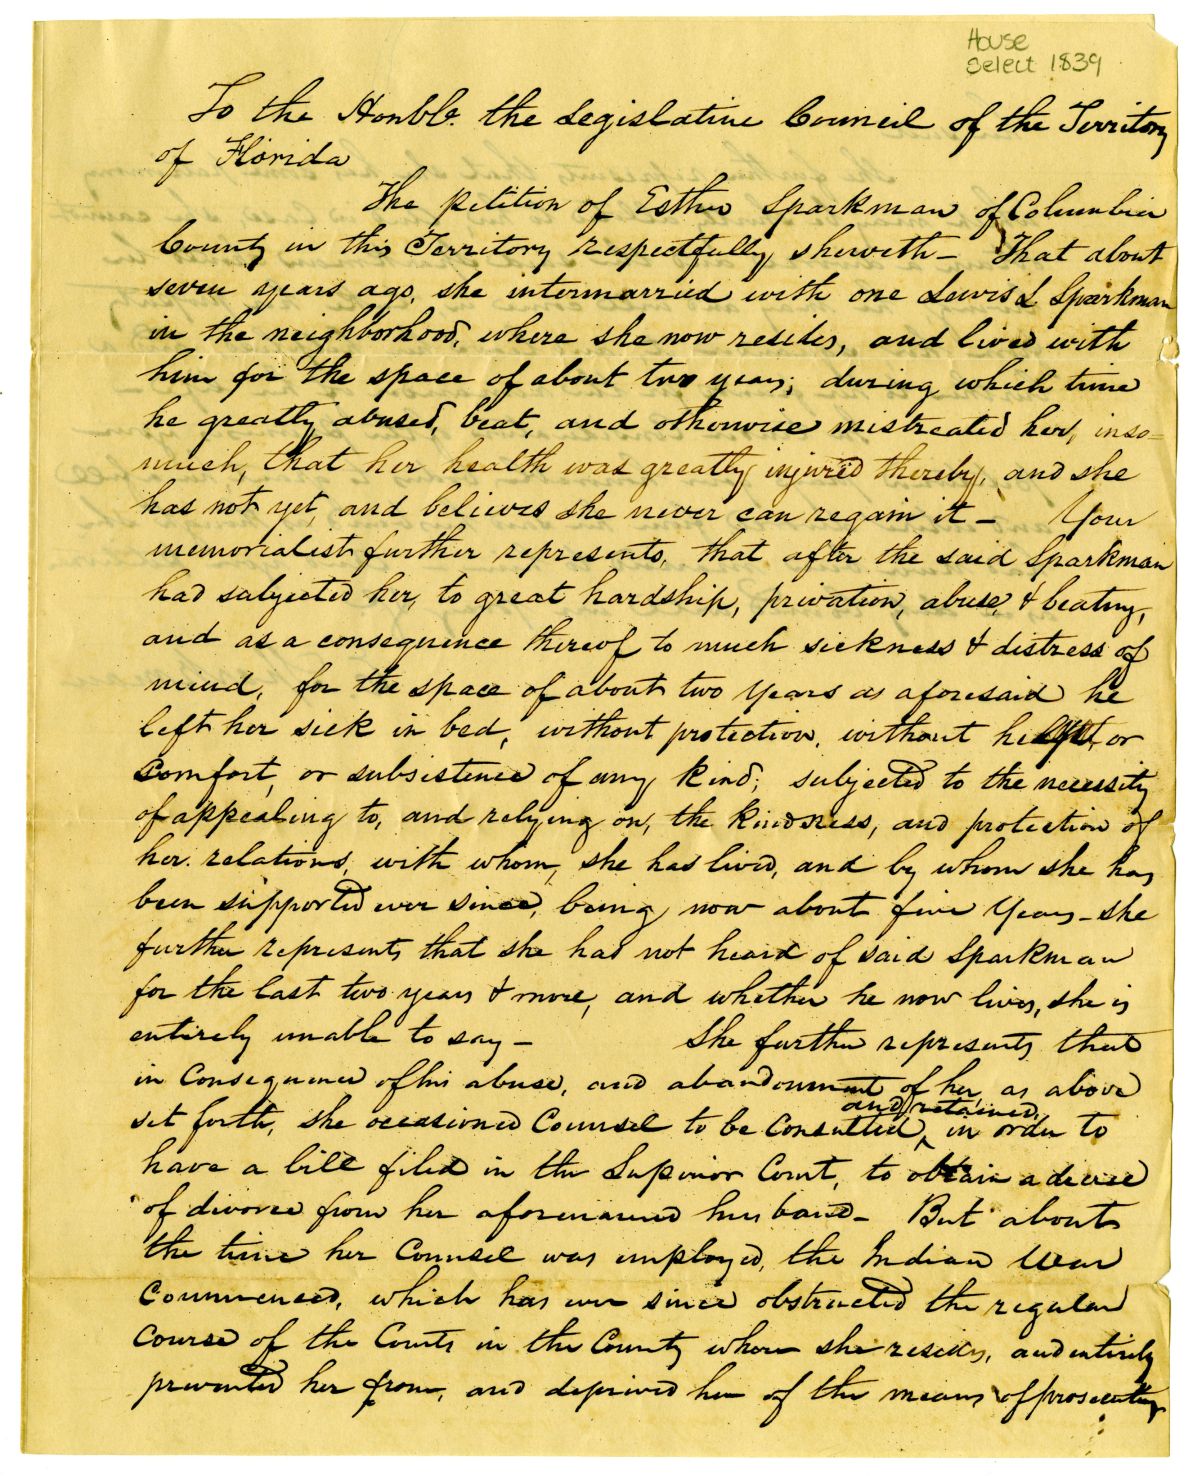 House
Select 1839
To the Honble. the Legislative Council of the Territory
of Florida
The petition of Esther Sparkman of Columbia
County in this Territory respectfully sheweth – That about
seven years ago, she intermarried with one Lewis L Sparkman
in the neighborhood, where she now resides, and lived with
him for the space of about two years; during which time
he greatly abused, beat, and otherwise mistreated her, inso-
much, that her health was greatly injured thereby, and she
has not yet, and believes she never can regain it – Your
memorialist further represents, that after the said Sparkman
had subjected her, to great hardship, privation, abuse, & beating,
and as a consequence thereof to much sickness & distress of
mind, for the space of about two years as aforesaid he
left her sick in bed, without protection, without or
comfort, or subsistence of any kind; subjected to the necessity
of appealing to, and relying on, the kindness, and protection of
her relations, with whom, she has lived, and by whom she has
been supported ever since, being now about five years – she
further represents that she has not heard of said Sparkman
for the last two years & more, and whether he now lives, she is
entirely unable to say – She further represents that
in consequence of his abuse, and abandonment of her as above
and retained,
set forth, she occasioned Counsel to be Consulted, ^ in order to
have a bill filed in the Superior Court, to obtain a decree
of divorce from her aforenamed husband – But about
the time her Counsel was employed, the Indian War
Commenced, which has ever since obstructed the regular
Course of the Courts in the County where she resides, and entirely
prevented her from, and deprived her of the means of prosecuting